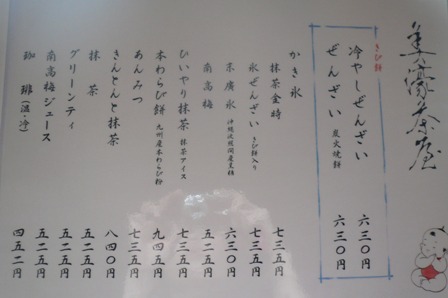 茶屋
きび餅
冷やしぜんざい 六三〇円
ぜんざい 炭火焼餅 六三〇円
かき氷
抹茶金時 七三五円
氷ぜんざい きび餅入り 七三五円
南高梅 五二五円
ひいやり抹茶 抹茶アイス 七三五円
本わらび餅 九州産本わらび粉 九四五円
あんみつ 七三五円
きんとんと抹茶 八四〇円
抹茶 五二五円
グリーンティ 五二五円
南高梅ジュース 五二五円
珈琲(温・冷) 四五二円